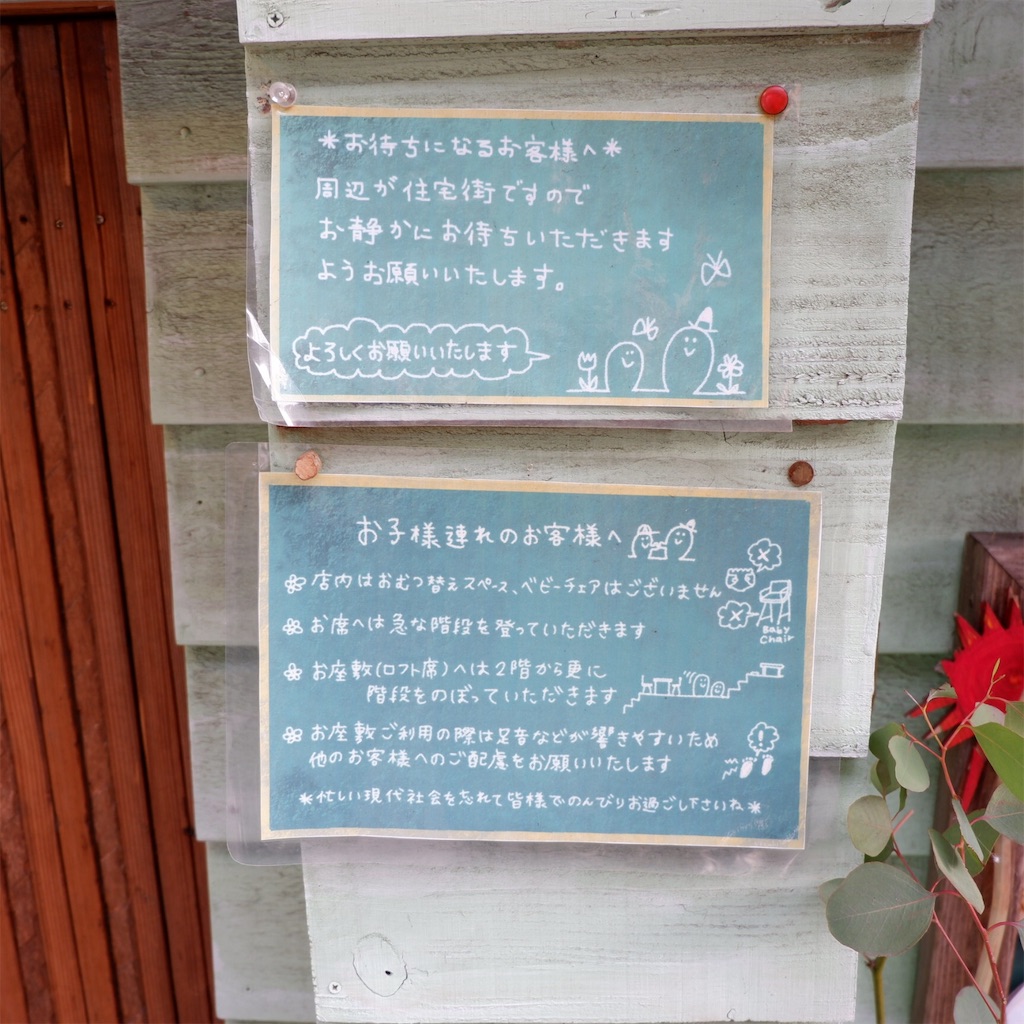 *お待ちになるお客様へ*
周辺が住宅街ですので
お静かにお待ちいただきます
ようお願いいたします。
よろしくお願いいたします
お子様連れのお客様へ
店内はおむつ替えスペース、ベビーチェアはございません
Baby
Chair
お席へは急な階段を登っていただきます
お座敷(ロフト席)へは2階から更に
階段をのぼっていただきます
お座敷ご利用の際は足音などが響きやすいため
他のお客様へのご配慮をお願いいたします
*忙しい現代社会を忘れて皆様でのんびりお過ごし下さいね*